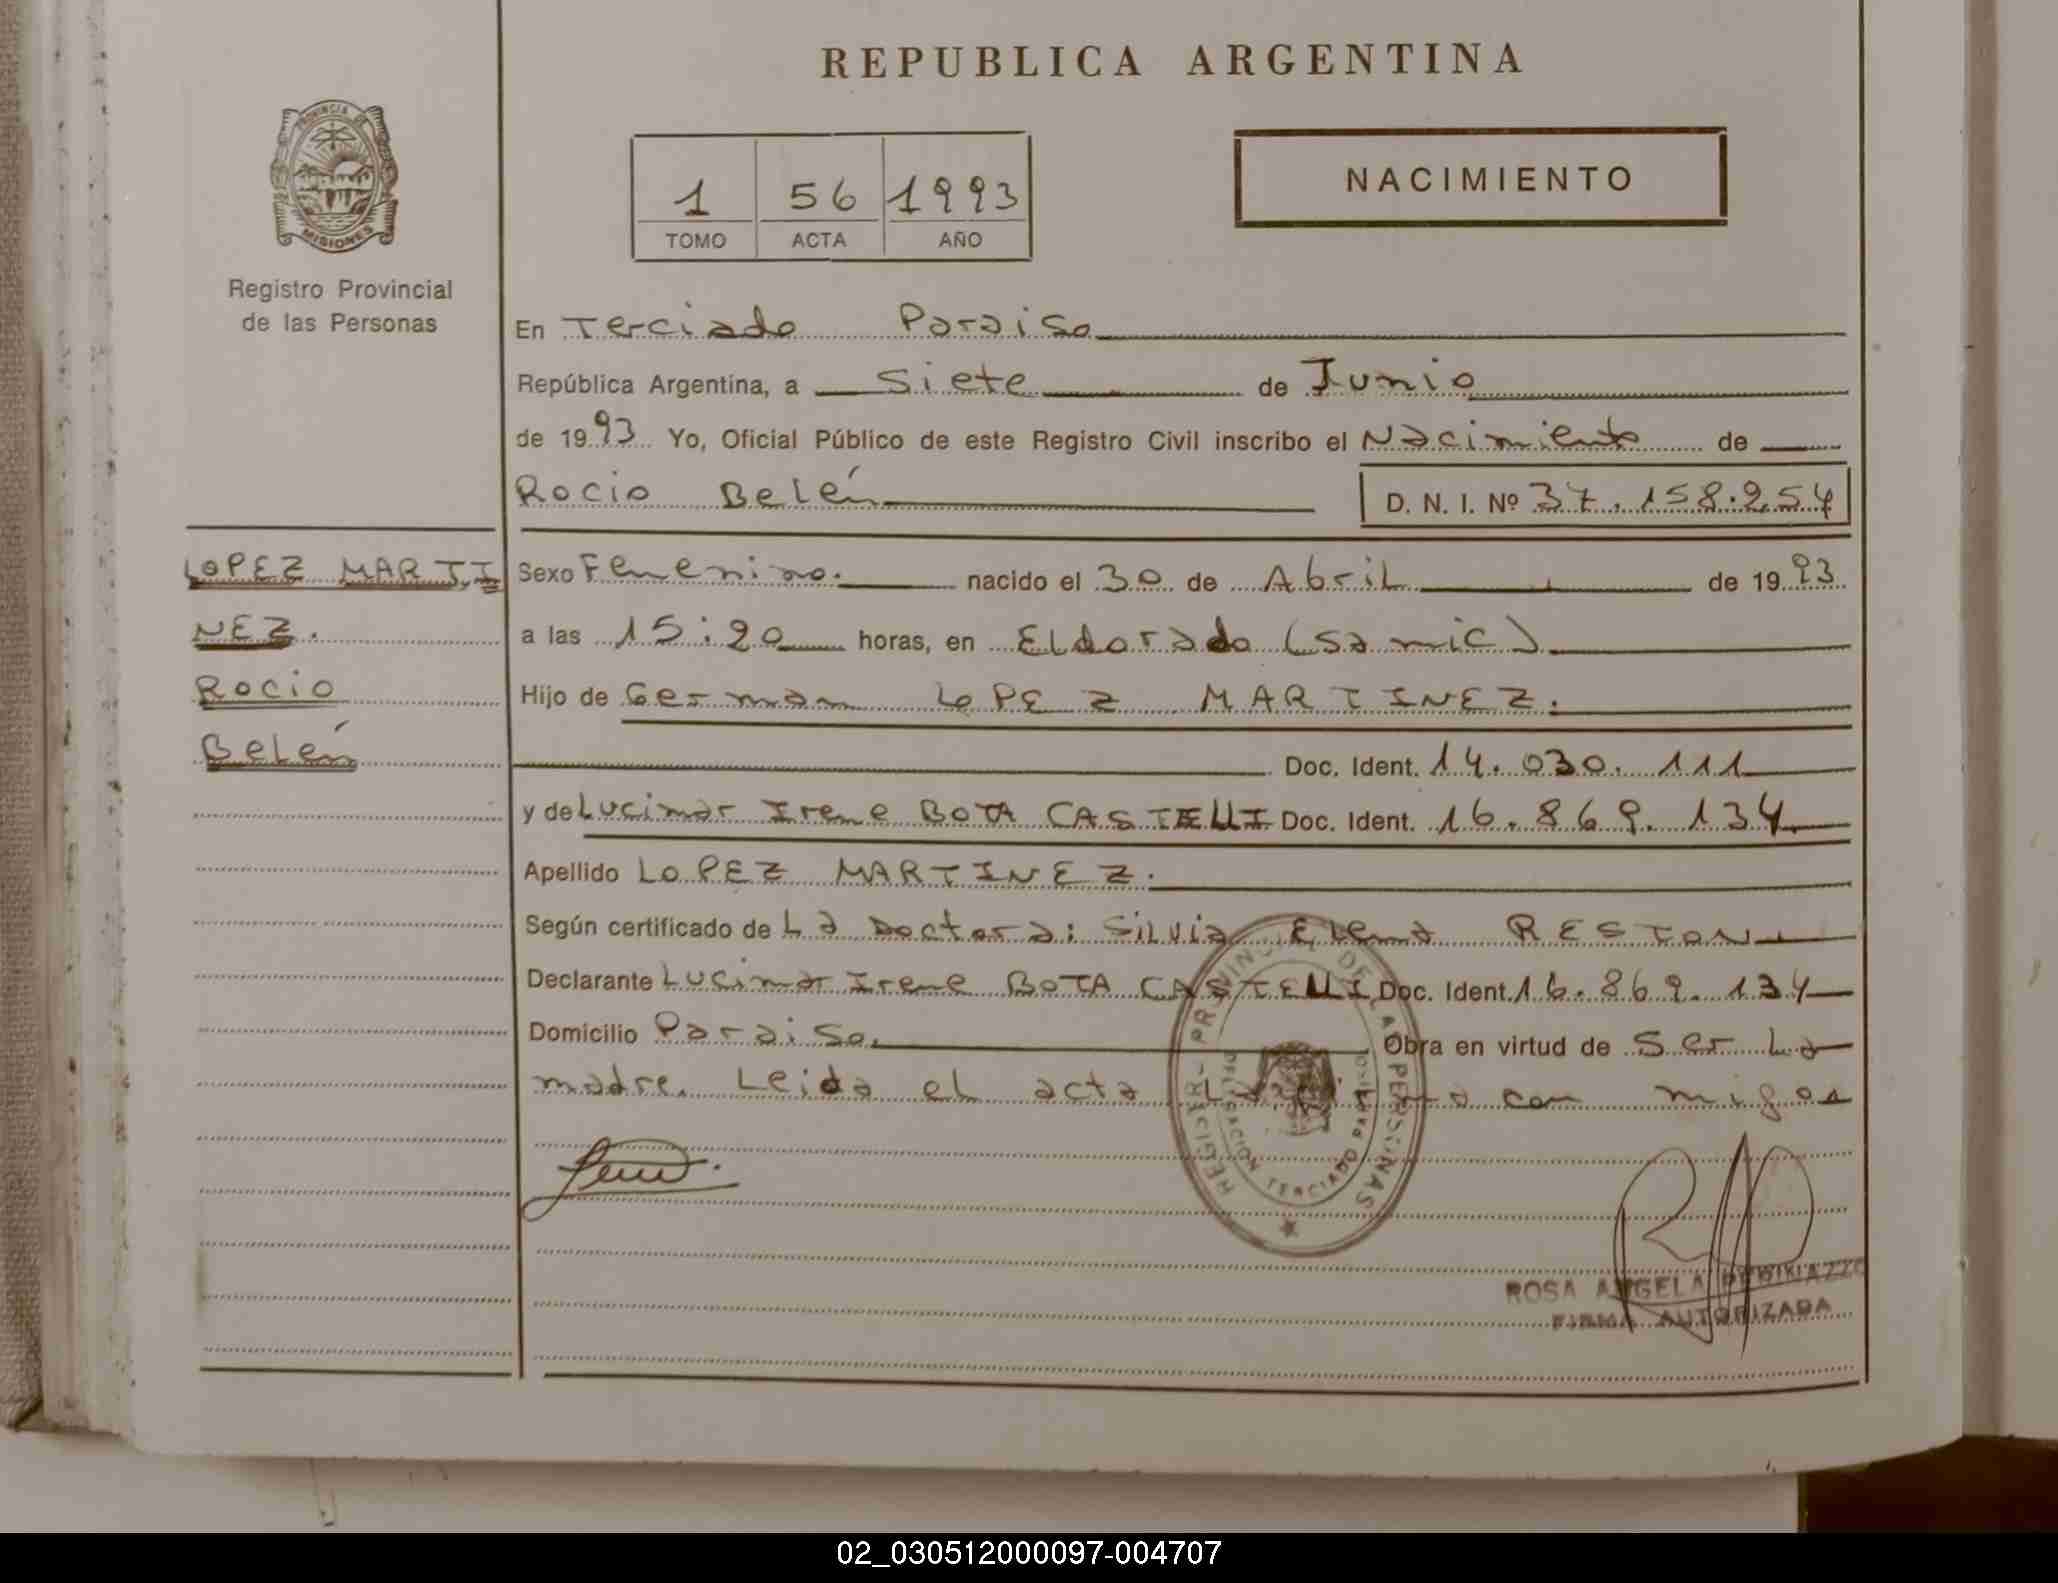 REPUBLICA ARGENTINA
PROVINCIA DE
MISIONES
Registro Provincial
de las Personas
1 56 1993
TOMO ACTA AÑO
NACIMIENTO
En Terciado Paraiso
República Argentina, a Siete de Junio
de 1993 Yo, Oficial Público de este Registro Civil inscribo el Nacimiento de
Rocio Belén D. N. I. Nº 37.158.254
LOPEZ MARTI
NEZ.
Rocio
Belén
Sexo Femenino. nacido el 30 de Abril de 1993
a las 15:20 horas, en Eldorado (samic)
Hijo de German LOPEZ MARTINEZ.
Doc. Ident. 14.030.111
y de Lucimar Irene BOTA CASTELLI Doc. Ident. 16.869.134
Apellido LOPEZ MARTINEZ.
Según certificado de La Doctora: Silvia Elena RESTON
Declarante Lucimar Irene BOTA CASTELLI Doc. Ident. 16.869.134
Domicilio Paraiso. Obra en virtud de Ser La
madre. Leida el acta La con migo
DELEGACION TERCIADO PARAISO
ROSA ANGELA
FIRMA AUTORIZADA
02_030512000097-004707